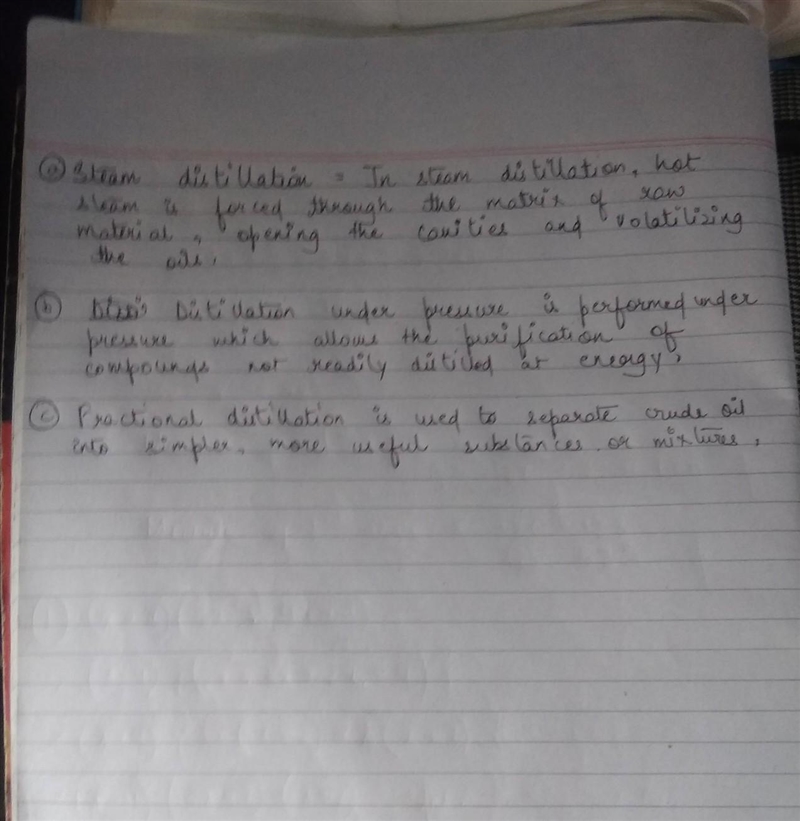 (a) Steam distillation = In steam distillation, hot
steam is forced through the matrix of raw
material, opening the cavities and volatilizing
the oils.
(b) Distillation under pressure is performed under
pressure which allows the purification of
compounds not readily distilled at energy,
(c) Fractional distillation is used to separate crude oil
into simpler, more useful substances or mixtures.